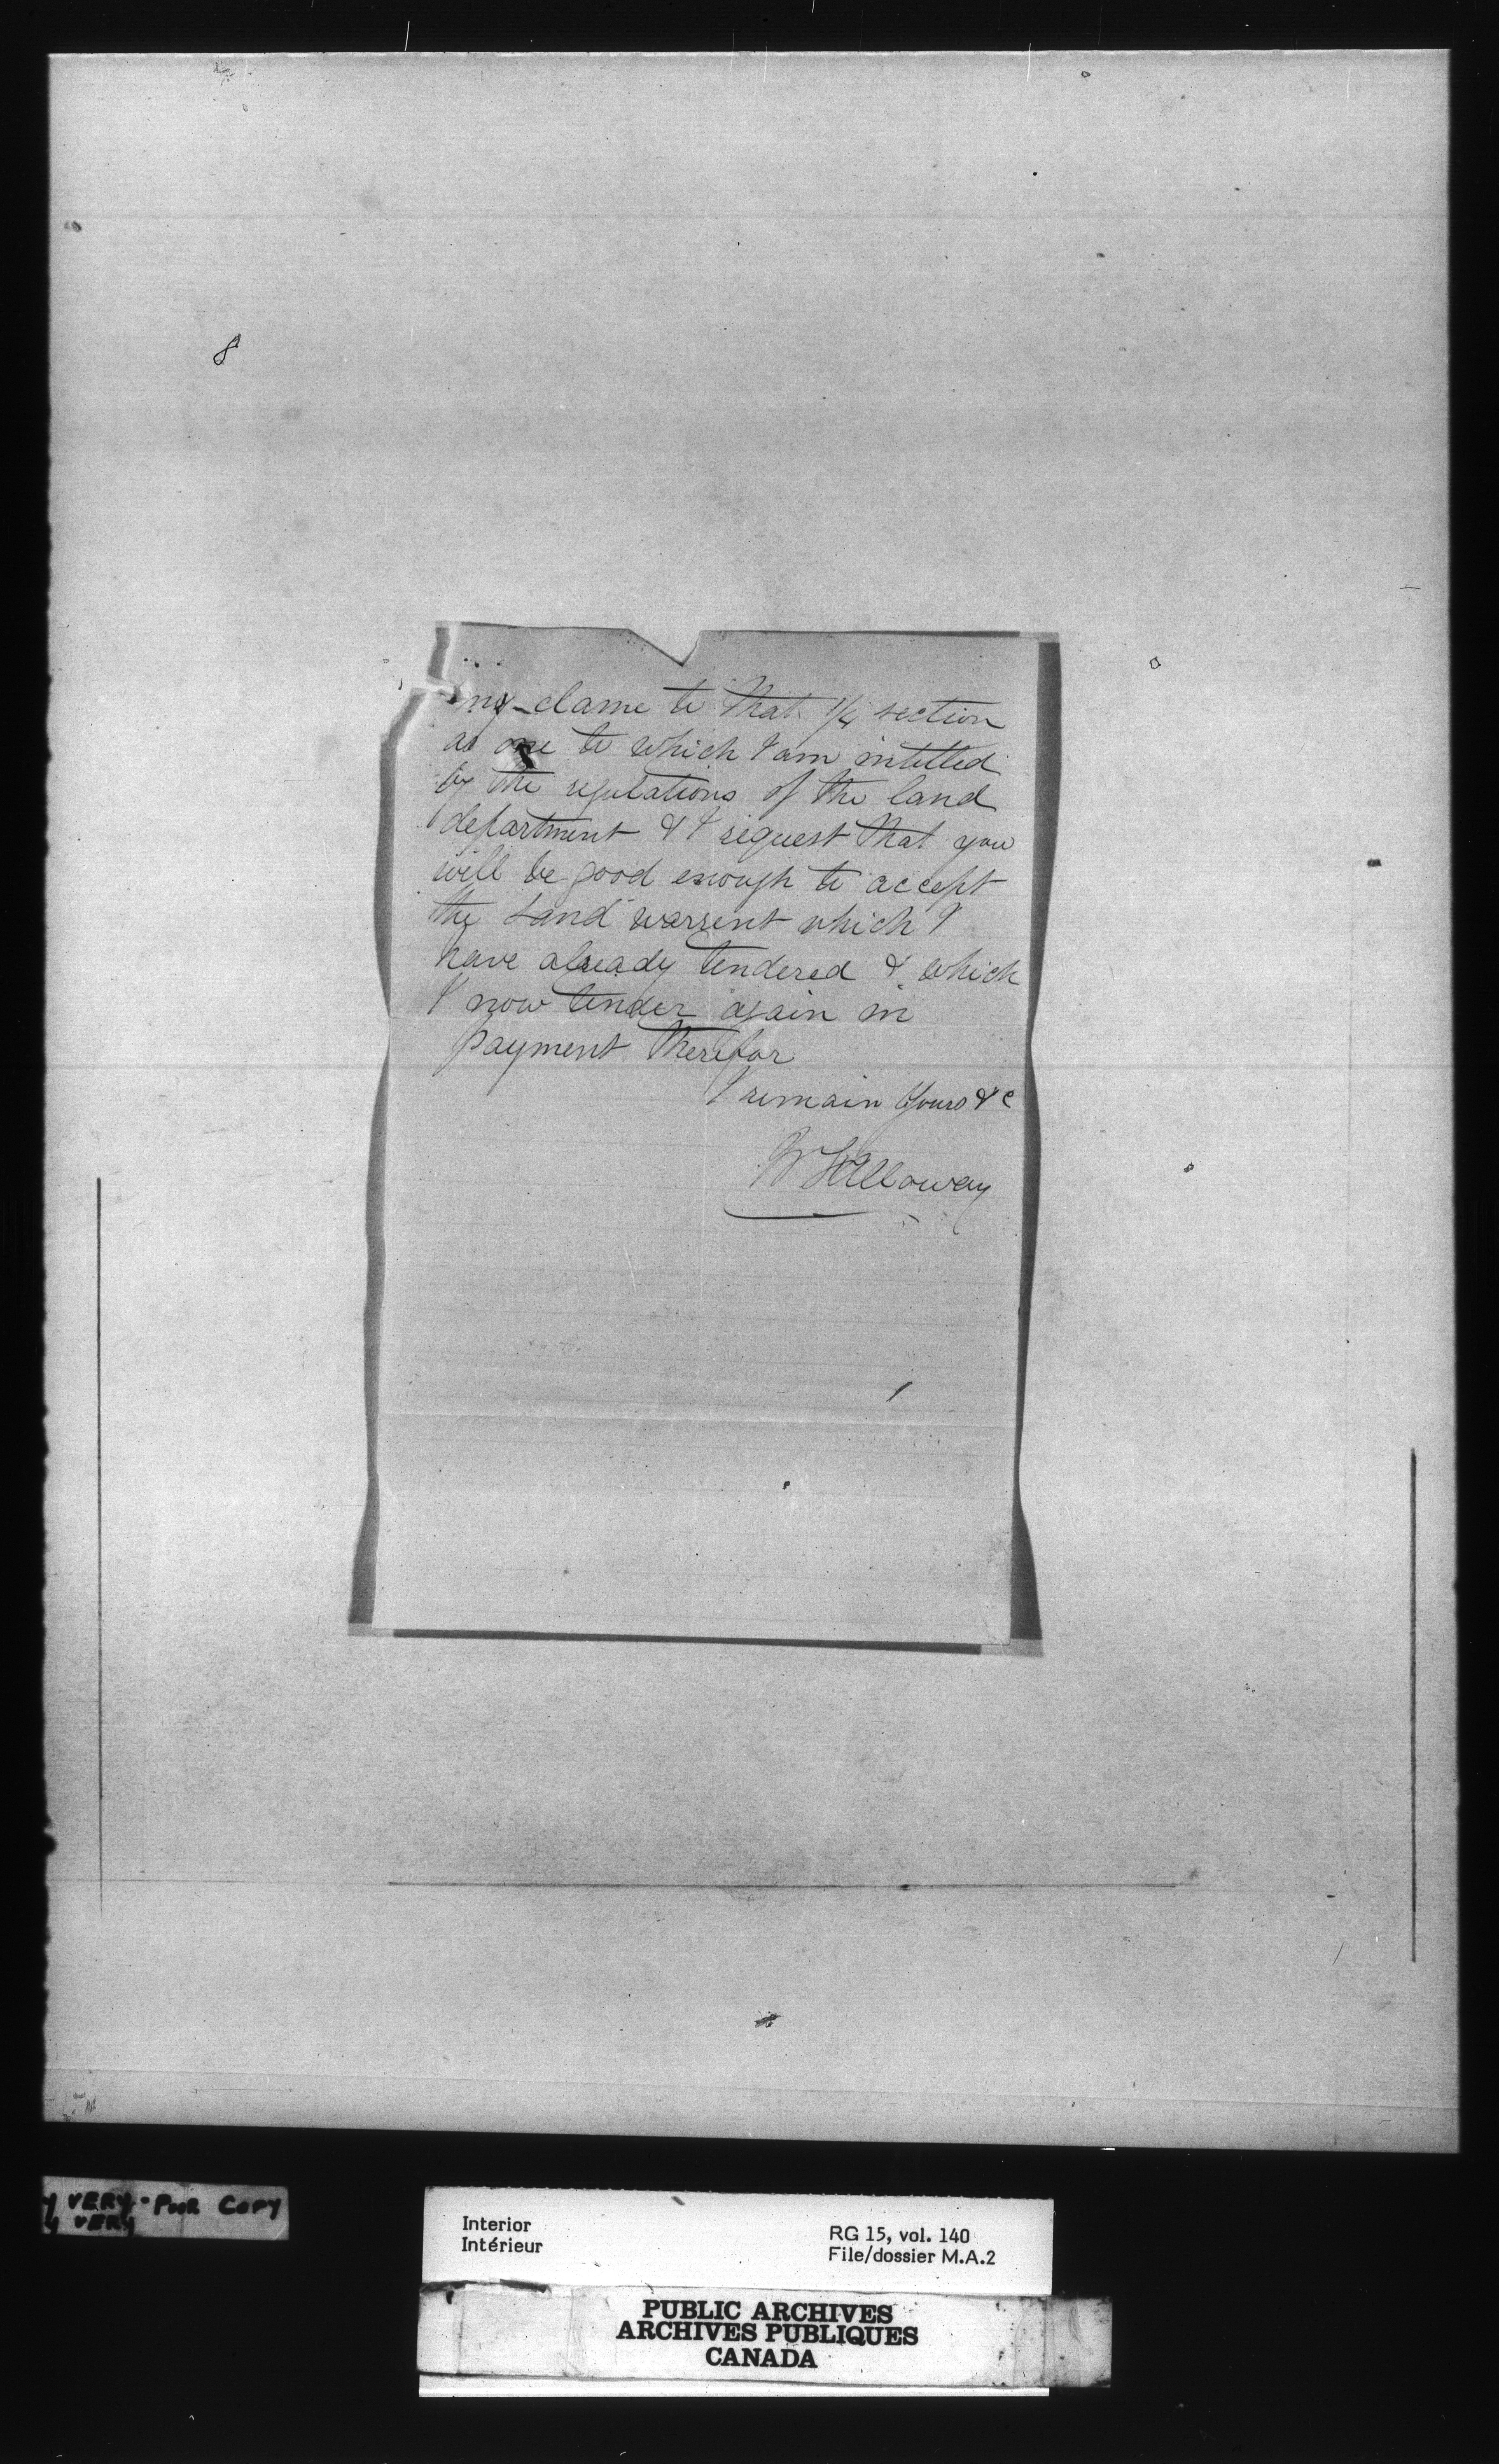 8
my clame to that 1/4 section
as one to which I am intitled
by the regulations of the land
department & I request that you
will be good enough to accept
the Land warrent which I
have already tendered & which
I now tender again in
payment therefor
I remain Yours &c
W F Alloway
VERY POOR COPY
VERY
Interior
Intérieur
RG 15, vol. 140
File/dossier M.A.2
PUBLIC ARCHIVES
ARCHIVES PUBLIQUES
CANADA